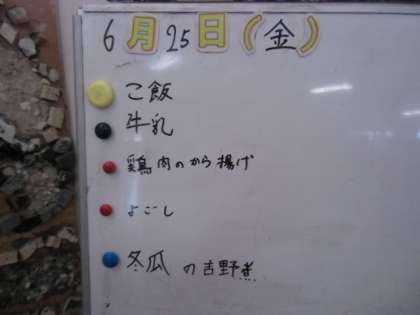 6月25日(金)
ご飯
牛乳
鶏肉のから揚げ
よごし
冬瓜の吉野煮